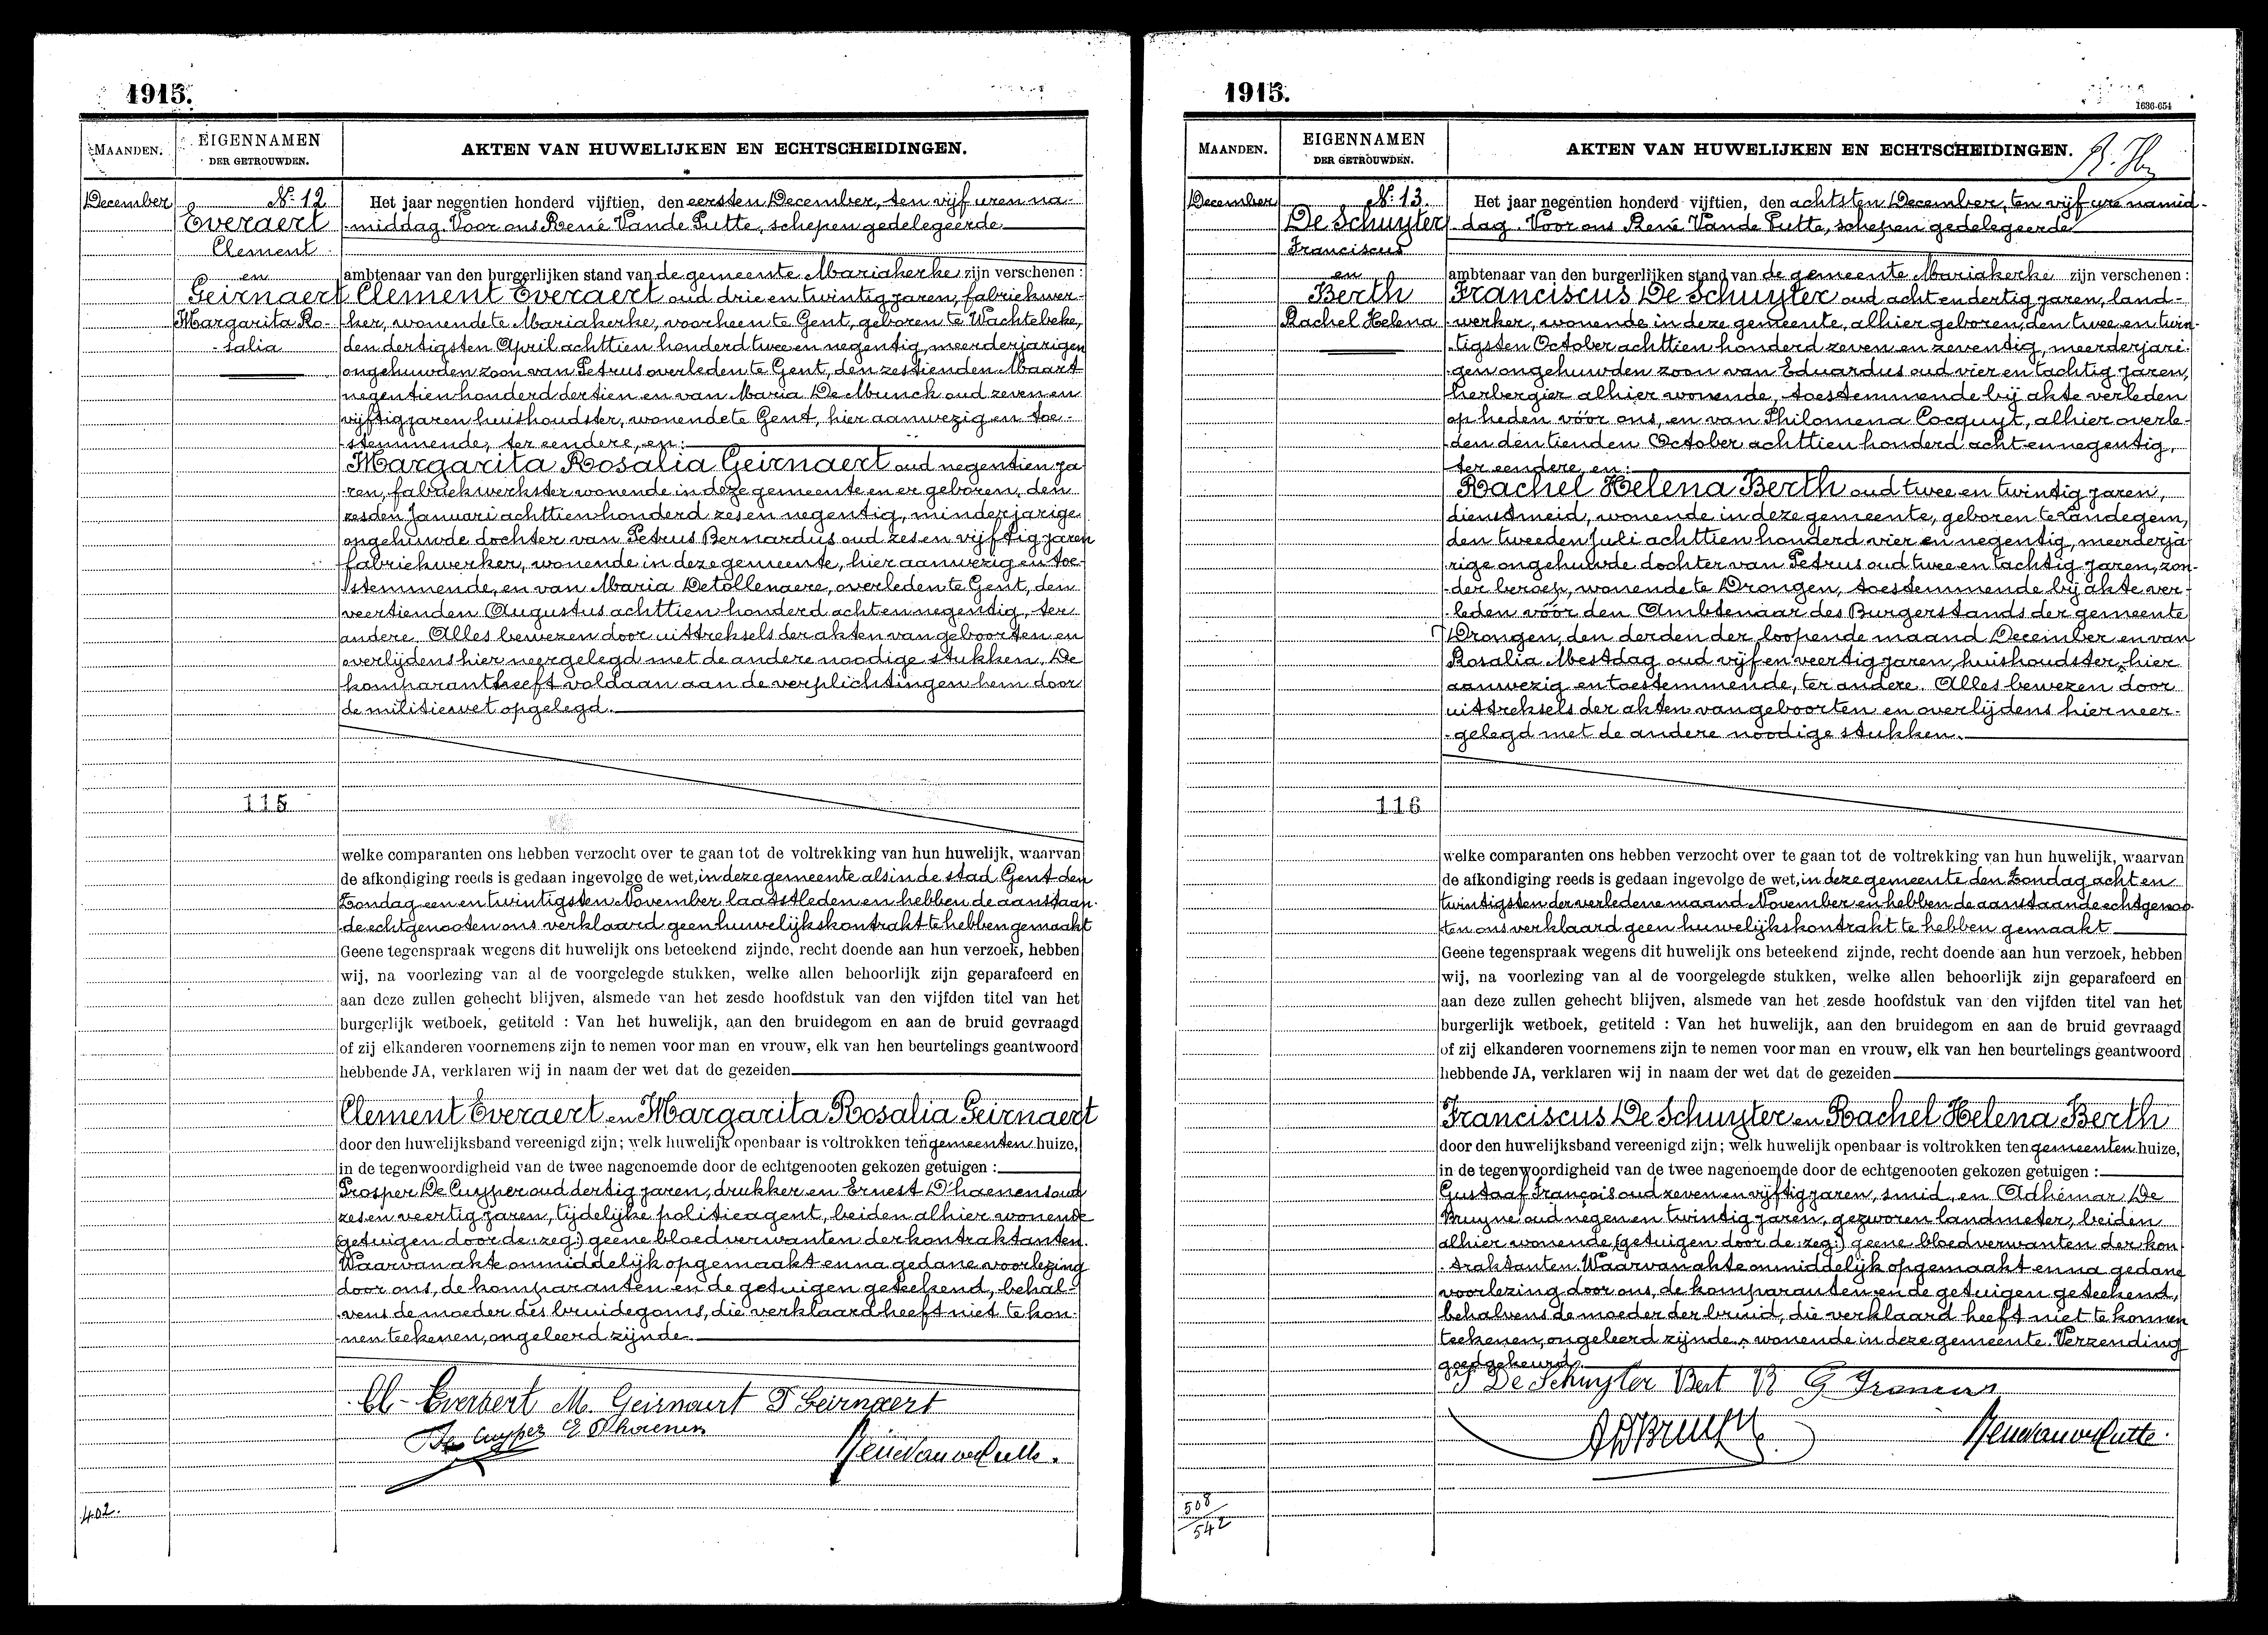 1915.
MAANDEN.
EIGENNAMEN
DER GETROUWDEN.
AKTEN VAN HUWELIJKEN EN ECHTSCHEIDINGEN.
December
No. 12
Everaert
Clement
en
Geirnaert
Margarita Ro-
-salia
115
402.
Het jaar negentien honderd vijftien, den eersten December, ten vijf uren na-
-middag. Voor ons René Vande Putte, schepen gedelegeerde
ambtenaar van den burgerlijken stand van de gemeente Mariakerke zijn verschenen :
Clement Everaert oud drie en twintig jaren, fabriekwer-
ker, wonende te Mariakerke, voorheen te Gent, geboren te Wachtebeke,
den dertigsten April achttien honderd twee en negentig, meerderjarigen
ongehuwden zoon van Petrus overleden te Gent, den zestienden Maart
negentien honderd dertien en van Maria De Munck oud zeven en
vijftig jaren huishoudster, wonende te Gent, hier aanwezig en toe-
-stemmende, ter eendere, en:
Margarita Rosalia Geirnaert oud negentien ja
-ren, fabriekwerkster wonende in deze gemeente en er geboren, den
zesden Januari achttien honderd zes en negentig, minderjarige
ongehuwde dochter van Petrus Bernardus oud zes en vijftig jaren
fabriekwerker, wonende in deze gemeente, hier aanwezig en toe-
stemmende, en van Maria Detollenaere, overleden te Gent, den
veertienden Augustus achttien honderd acht en negentig, ter
andere. Alles bewezen door uittreksels der akten van geboorten en
overlijdens hier neergelegd met de andere noodige stukken. De
komparant heeft voldaan aan de verplichtingen hem door
de militiewet opgelegd.
welke comparanten ons hebben verzocht over te gaan tot de voltrekking van hun huwelijk, waarvan
de afkondiging reeds is gedaan ingevolge de wet, in deze gemeente als in de stad Gent den
Zondag een en twintigsten November laatstleden en hebben de aanstaan-
-de echtgenooten ons verklaard geen huwelijkskontrakt te hebben gemaakt
Geene tegenspraak wegens dit huwelijk ons beteekend zijnde, recht doende aan hun verzoek, hebben
wij, na voorlezing van al de voorgelegde stukken, welke allen behoorlijk zijn geparafeerd en
aan deze zullen gehecht blijven, alsmede van het zesde hoofdstuk van den vijfden titel van het
burgerlijk wetboek, getiteld : Van het huwelijk, aan den bruidegom en aan de bruid gevraagd
of zij elkanderen voornemens zijn te nemen voor man en vrouw, elk van hen beurtelings geantwoord
hebbende JA, verklaren wij in naam der wet dat de gezeiden
Clement Everaert en Margarita Rosalia Geirnaert
door den huwelijksband vereenigd zijn; welk huwelijk openbaar is voltrokken ten gemeenten huize,
in de tegenwoordigheid van de twee nagenoemde door de echtgenooten gekozen getuigen :
Prosper De Cuyper oud dertig jaren, drukker en Ernest D'haenens oud
zes en veertig jaren, tijdelijke politieagent, beiden alhier wonende
(getuigen door de: zeg:) geene bloedverwanten der kontraktanten.
Waarvan akte onmiddelijk opgemaakt en na gedane voorlezing
door ons, de komparanten en de getuigen geteekend, behal-
-vens de moeder des bruidegoms, die verklaard heeft niet te kon-
-nen teekenen, ongeleerd zijnde.
Cl- Everaert M. Geirnaert P Geirnaert
De Cuyper E D'haenens
René Van de Putte.
1915.
1636-654
MAANDEN.
EIGENNAMEN
DER GETROUWDEN.
AKTEN VAN HUWELIJKEN EN ECHTSCHEIDINGEN.
December
No. 13
De Schuyter
Franciscus
en
Berth
Rachel Helena
116
508
542
Het jaar negentien honderd vijftien, den achtsten December, ten vijf ure namid-
-dag. Voor ons René Vande Putte, schepen gedelegeerde
ambtenaar van den burgerlijken stand van de gemeente Mariakerke zijn verschenen :
Franciscus De Schuyter oud acht en dertig jaren, land-
-werker, wonende in deze gemeente, alhier geboren, den twee en twin-
-tigsten October achttien honderd zeven en zeventig, meerderjari-
-gen ongehuwden zoon van Eduardus oud vier en tachtig jaren,
herbergier alhier wonende, toestemmende bij akte verleden
op heden vóór ons, en van Philomena Cocquyt, alhier overle-
-den den tienden October achttien honderd acht en negentig,
ter eendere, en:
Rachel Helena Berth oud twee en twintig jaren,
dienstmeid, wonende in deze gemeente, geboren te Landegem,
den tweeden Juli achttien honderd vier en negentig, meerderja
rige ongehuwde dochter van Petrus oud twee en tachtig jaren, zon-
-der beroep, wonende te Drongen, toestemmende bij akte ver-
-leden vóór den Ambtenaar des Burgerstands der gemeente
Drongen, den derden der loopende maand December en van
Rosalia Mestdag oud vijf en veertig jaren, huishoudster, hier
aanwezig en toestemmende, ter andere. Alles bewezen door
uittreksels der akten van geboorten en overlijdens hier neer-
-gelegd met de andere noodige stukken.
welke comparanten ons hebben verzocht over te gaan tot de voltrekking van hun huwelijk, waarvan
de afkondiging reeds is gedaan ingevolge de wet, in deze gemeente den Zondag acht en
twintigsten der verledene maand November en hebben de aanstaande echtgenoo-
ten ons verklaard geen huwelijkskontrakt te hebben gemaakt
Geene tegenspraak wegens dit huwelijk ons beteekend zijnde, recht doende aan hun verzoek, hebben
wij, na voorlezing van al de voorgelegde stukken, welke allen behoorlijk zijn geparafeerd en
aan deze zullen gehecht blijven, alsmede van het zesde hoofdstuk van den vijfden titel van het
burgerlijk wetboek, getiteld : Van het huwelijk, aan den bruidegom en aan de bruid gevraagd
of zij elkanderen voornemens zijn te nemen voor man en vrouw, elk van hen beurtelings geantwoord
hebbende JA, verklaren wij in naam der wet dat de gezeiden
Franciscus De Schuyter en Rachel Helena Berth
door den huwelijksband vereenigd zijn; welk huwelijk openbaar is voltrokken ten gemeenten huize,
in de tegenwoordigheid van de twee nagenoemde door de echtgenooten gekozen getuigen :
Gustaaf François oud zeven en vijftig jaren, smid, en Adhémar De
Bruyne oud negen en twintig jaren, gezworen landmeter, beiden
alhier wonende, (getuigen door de: zeg:) geene bloedverwanten der kon
-traktanten. Waarvan akte onmiddelijk opgemaakt en na gedane
voorlezing door ons, de komparanten en de getuigen geteekend,
behalvens de moeder der bruid, die verklaard heeft niet te konnen
teekenen, ongeleerd zijnde. wonende in deze gemeente. Verzending
goedgekeurd.
F De Schuyter Bert R G François
ADBruyne
René Van de Putte.